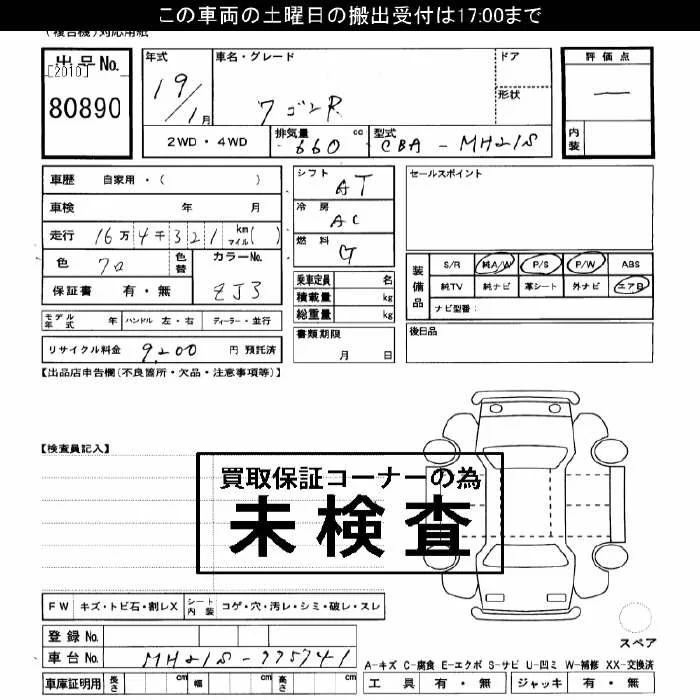 この車両の土曜日の搬出受付は17:00まで
(複合機)対応用紙
出品No.
[2010]
80890
年式
19/1月
車名・グレード
ワゴンR
ドア
形状
2WD・4WD
排気量 660 cc
型式 CBA-MH21S
評価点
―
内装
車歴 自家用・( )
車検 年 月
走行 16万4千321 km マイル( )
色 クロ 色替
カラーNo. ZJ3
保証書 有・無
モデル年式 年 ハンドル 左・右 ディーラー・並行
リサイクル料金 9200 円 預託済
シフト AT
冷房 AC
燃料 G
乗車定員 名
積載量 kg
総重量 kg
書類期限
月 日
セールスポイント
装備品
S/R 純A/W P/S P/W ABS
純TV 純ナビ 革シート 外ナビ エアB
ナビ型番:
後日品
【出品店申告欄(不良箇所・欠品・注意事項等)】
【検査員記入】
買取保証コーナーの為
未検査
FW キズ・トビ石・割レX シート内装 コゲ・穴・汚レ・シミ・破レ・スレ
登録No.
車台No. MH21S-775741
車庫証明用 長さ cm 幅 cm 高さ cm
スペア
A-キズ C-腐食 E-エクボ S-サビ U-凹ミ W-補修 XX-交換済
工具 有・無 ジャッキ 有・無